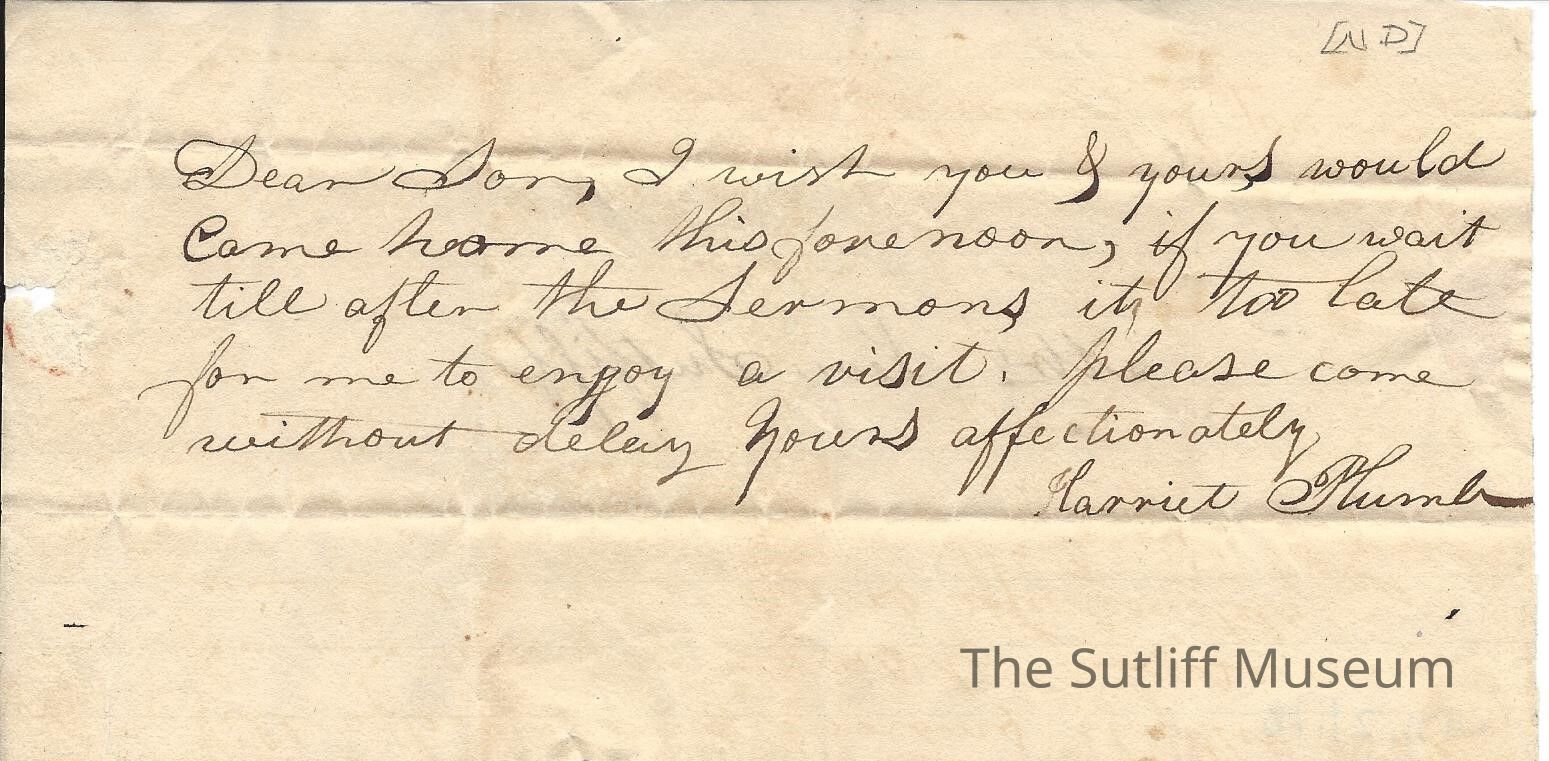 [ND]
Dear Son, I wish you & yours would
Come home this forenoon, if you wait
till after the Sermons, its too late
for me to enjoy a visit. please come
without delay Yours affectionately
Harriet Plumb
The Sutliff Museum